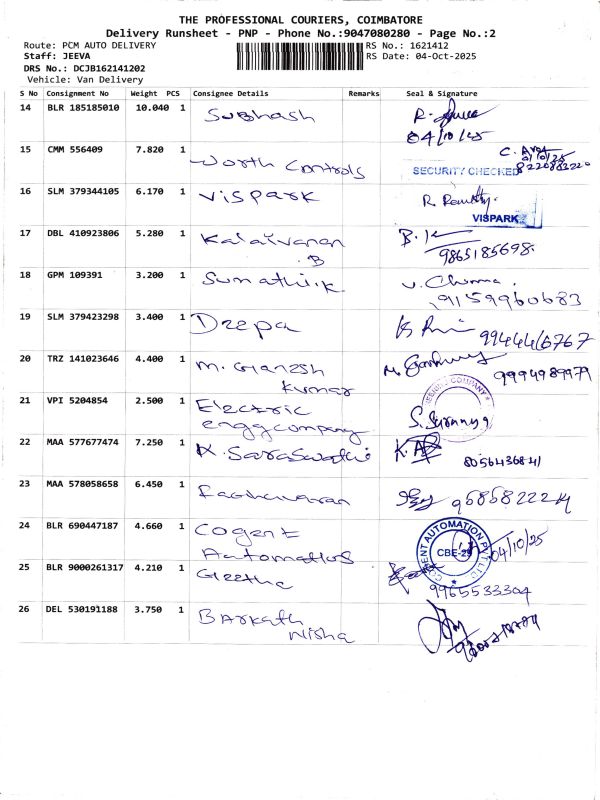 THE PROFESSIONAL COURIERS, COIMBATORE
Delivery Runsheet - PNP - Phone No.:9047080280 - Page No.:2
Route: PCM AUTO DELIVERY RS No.: 1621412
Staff: JEEVA RS Date: 04-Oct-2025
DRS No.: DCJB162141202
Vehicle: Van Delivery
S No Consignment No Weight PCS Consignee Details Remarks Seal & Signature
14 BLR 185185010 10.040 1 Subhash
04/10/25
15 CMM 556409 7.820 1
Worth Controls
SECURITY CHECKED
16 SLM 379344105 6.170 1 Vispark
VISPARK
17 DBL 410923806 5.280 1 Kalaivanan
.B
9865185698.
18 GPM 109391 3.200 1 Sumathi.K
91159960683
19 SLM 379423298 3.400 1 Deepa
9944416767
20 TRZ 141023646 4.400 1 M. Ganesh
Kumar
9994987979
21 VPI 5204854 2.500 1 Electric
engg company
22 MAA 577677474 7.250 1 K. Saraswathi
8056436841
23 MAA 578058658 6.450 1
24 BLR 690447187 4.660 1 Cogent
Automations
COGENT AUTOMATION PVT LTD
CBE-29
04/10/25
25 BLR 9000261317 4.210 1 Geetha
9965533304
26 DEL 530191188 3.750 1 Barkath
Nisha